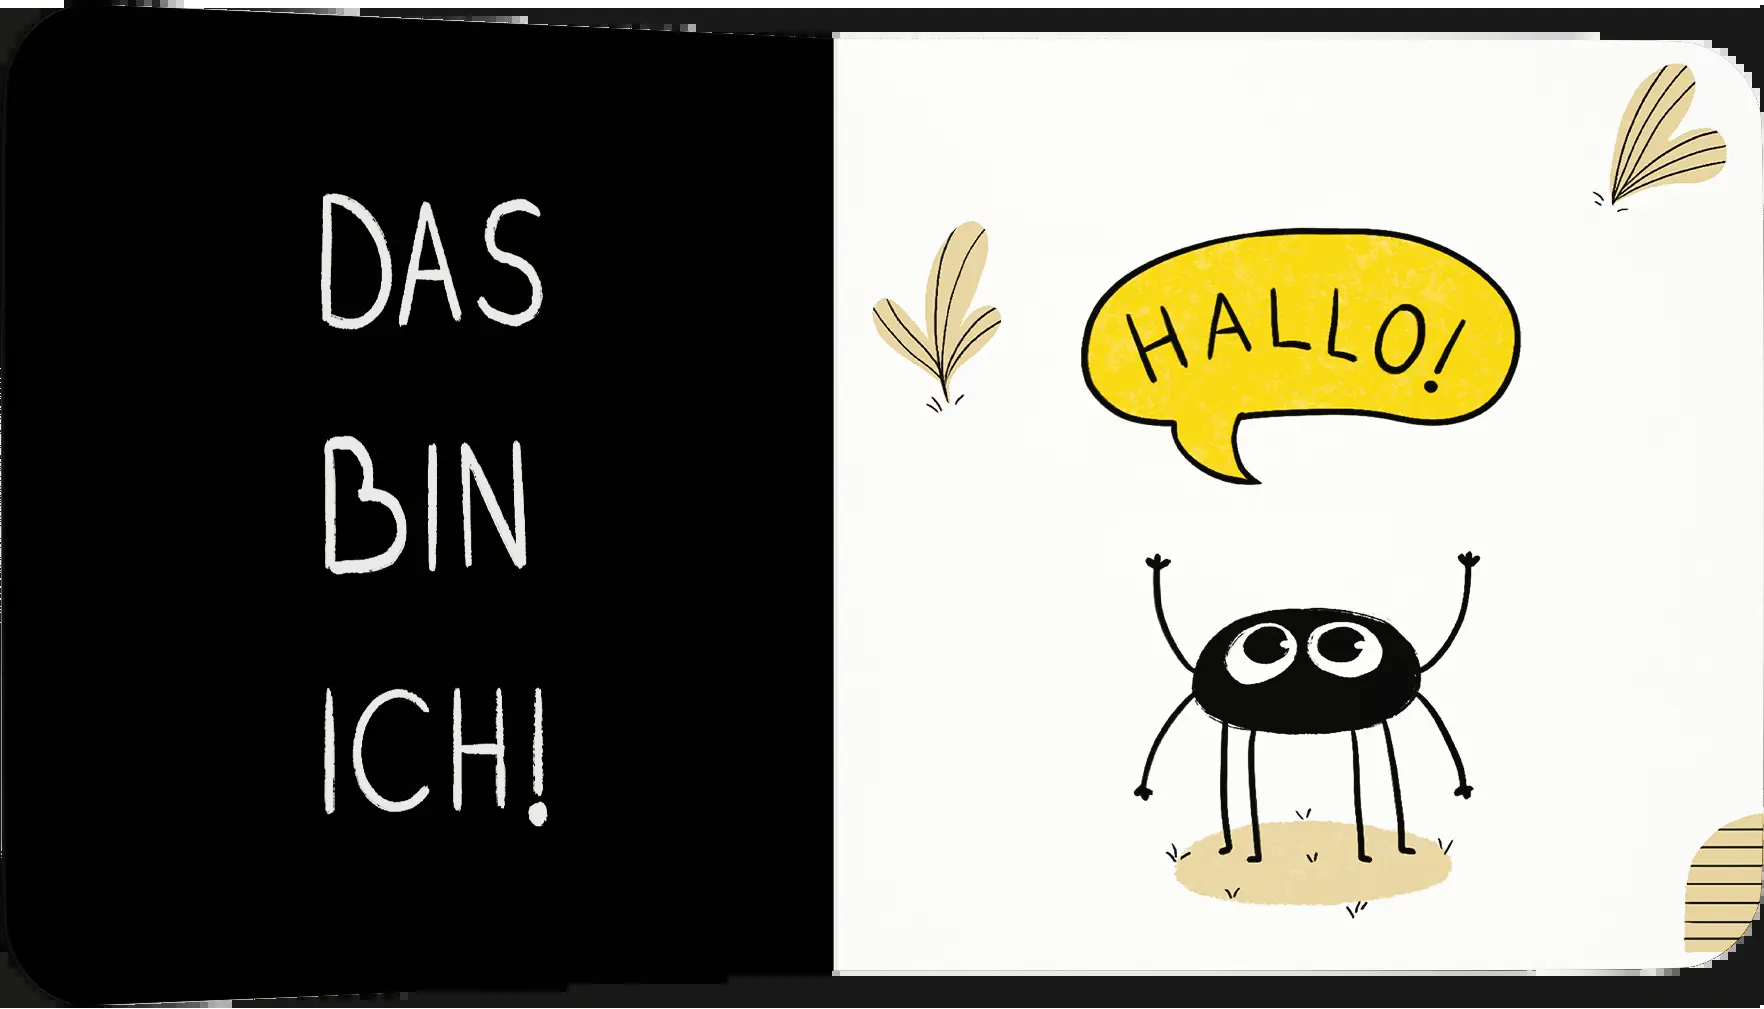 DAS
BIN
ICH!
HALLO!